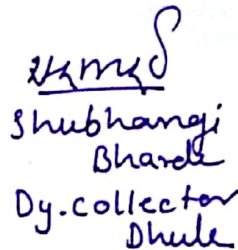 Shubhangi
Bharde
Dy. Collector
Dhule